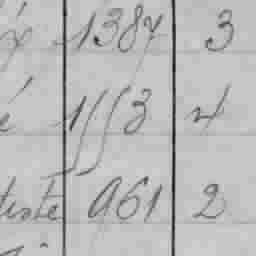 1387 3
é 1553 4
tiste 961 2